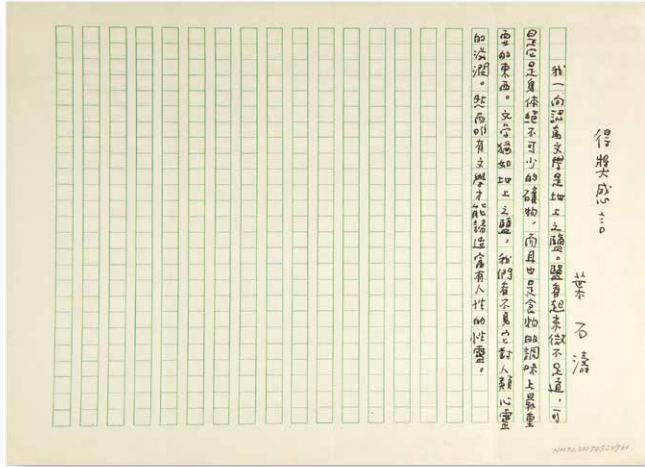 得獎感言
葉石濤
我一向認為文學是地上之鹽。鹽看起來微不足道,可
是它是身体絕不可少的礦物,而且也是食物的調味上最重
要的東西。文学猶如地上之鹽,我們看不見它對人類心靈
的滋潤。然而唯有文學才能締造富有人性的性靈。